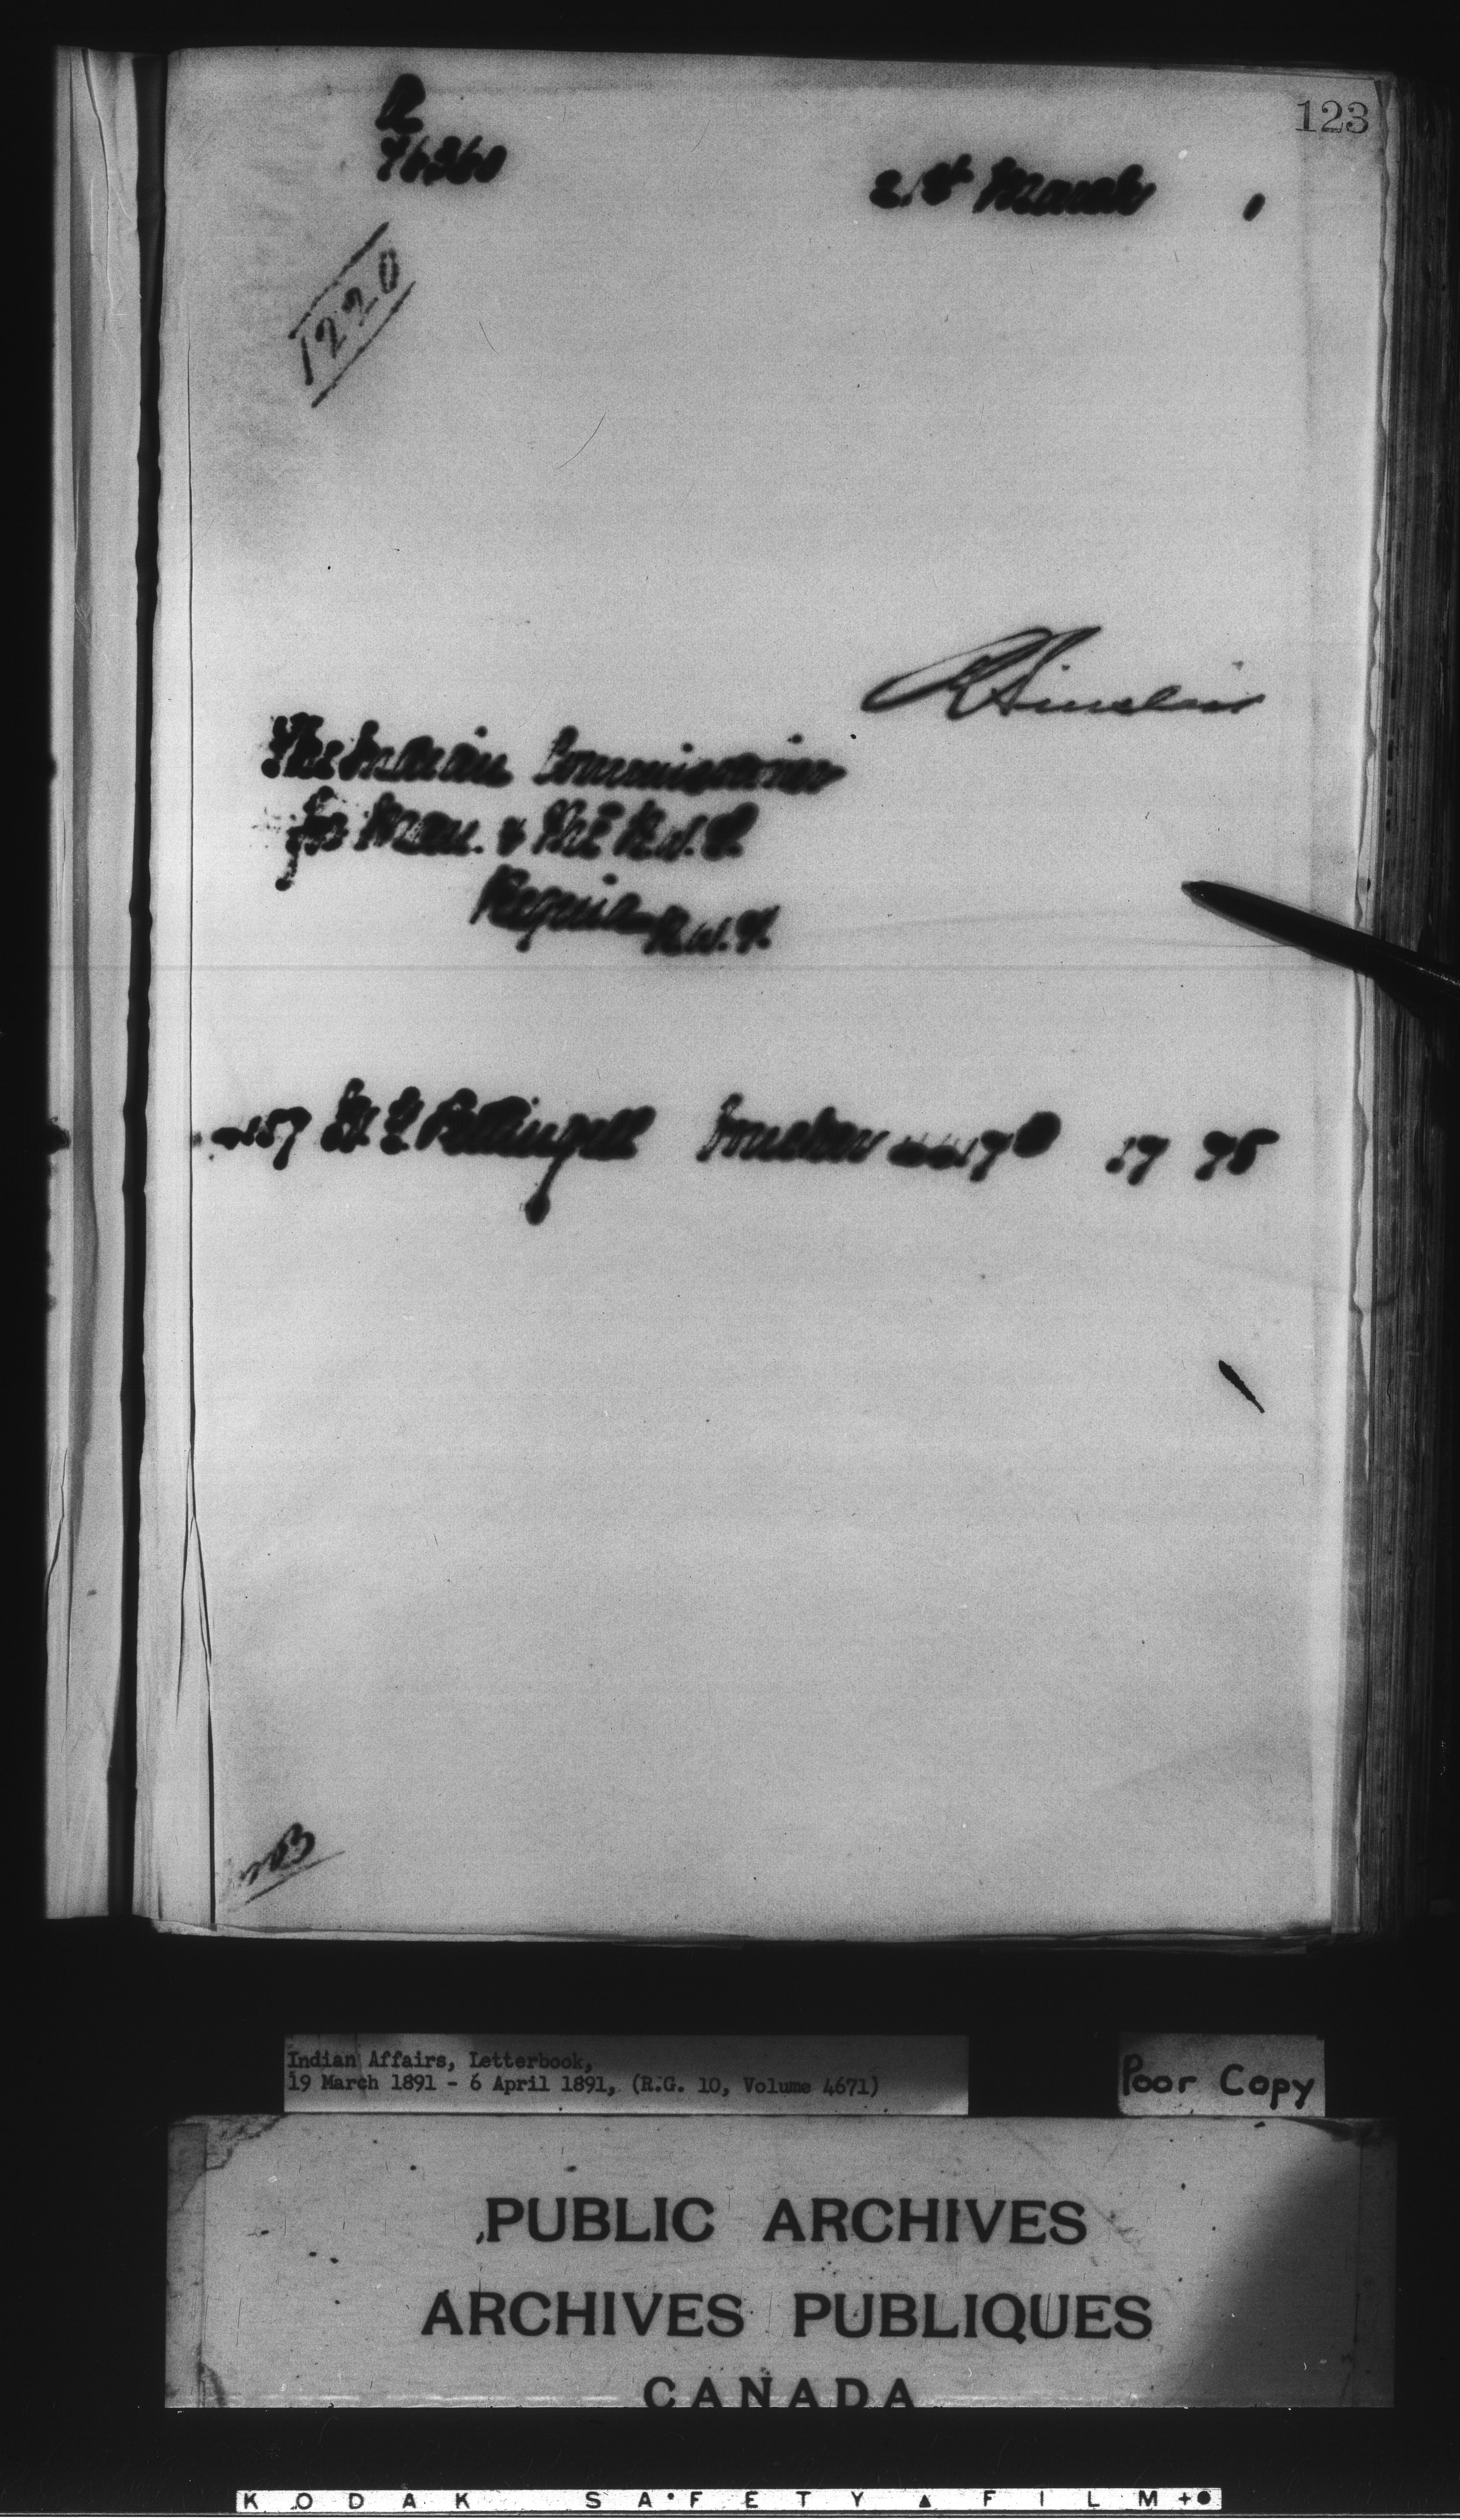 123
R
76360
21st March 1
1220
R Sinclair
The Indian Commissioner
for Man. & the N.W.T.
Regina N.W.T.
157 Pettingell Voucher 17 75
Indian Affairs, Letterbook,
19 March 1891 - 6 April 1891, (R.G. 10, Volume 4671)
Poor Copy
PUBLIC ARCHIVES
ARCHIVES PUBLIQUES
CANADA
KODAK SAFETY ▲ FILM